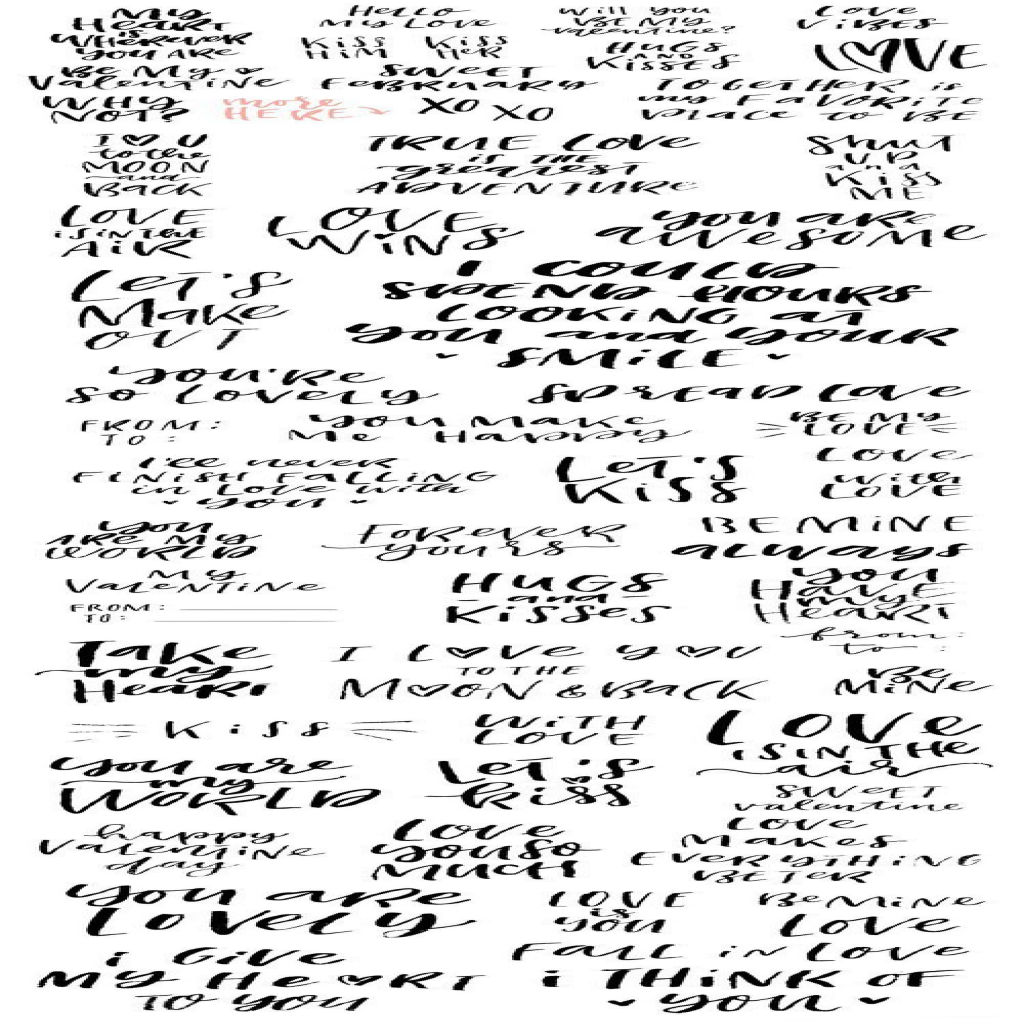 MY
HEART
is
WHEREVER
YOU ARE
HELLO
MY LOVE
KiSS
HiM
KiSS
HER
Will you
BE MY
valentine?
HUGS
AND
KiSSES
LOVE
ViBES
LOVE
BE MY
VALENTINE
SWEET
FEBRUARY
TOGETHER is
my FAVORiTE
PLACE to BE
WHY
NOT?
more
HERE
XO XO
I ♥ U
to the
MOON
and
BACK
TRUE LOVE
iS THE
greatest
ADVENTURE
SHUT
UP
and
KiSS
ME
LOVE
iS iN THE
AiR
LOVE
WiNS
you ARE
AWESOME
LET'S
MAKE
OUT
I COULD
SPEND HOURS
LOOKiNG AT
YOU and YOUR
SMiLE
YOU'RE
SO LOVELY
SPREAD LOVE
FROM:
TO:
YOU MAKE
ME HAPPY
BE MY
LOVE
I'll never
FiNiSH FALLiNG
in LOVE with
YOU
LET'S
KiSS
LOVE
with
LOVE
YOU
ARE MY
WORLD
FOREVER
yours
BE MiNE
always
MY
VALENTiNE
FROM:
TO:
HUGS
and
KiSSES
YOU
HAVE
my
HEART
from:
to:
TAKE
my
HEART
I LOVE YOU
TO THE
MOON & BACK
BE
MiNE
KiSS
WiTH
LOVE
LOVE
iS iN THE
air
you are
my
WORLD
LET'S
kiss
SWEET
valentine
happy
VALENTiNE
day
LOVE
YOU SO
MUCH
LOVE
MAKES
EVERYTHiNG
BETTER
you are
LOVELY
LOVE
is
YOU
BE MiNE
LOVE
i GiVE
MY HE♥RT
TO YOU
FALL iN LOVE
i THiNK OF
YOU